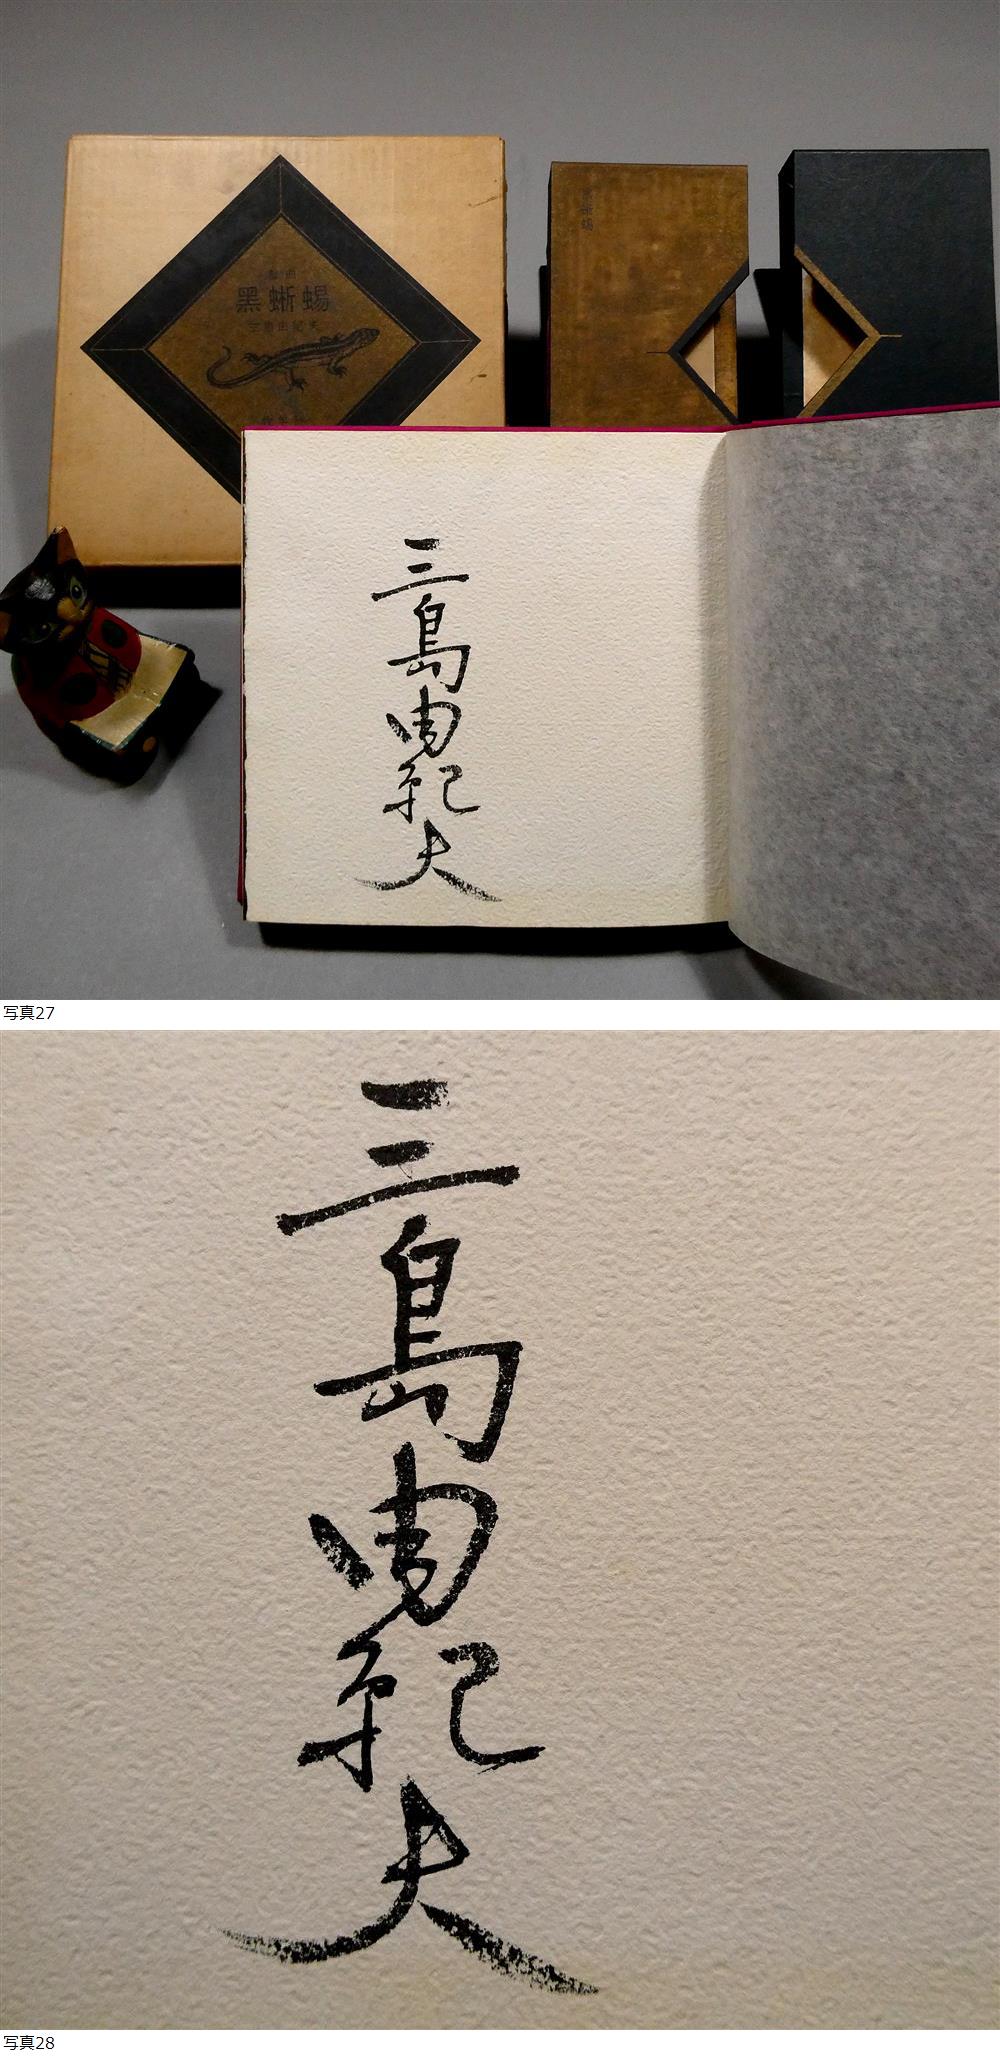 戯曲
黑蜥蜴
三島由紀夫
黑蜥蜴
三島由紀夫
写真27
三島由紀夫
写真28